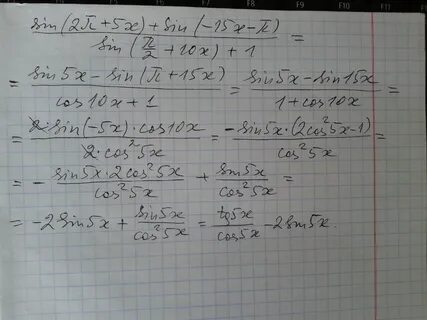 F7 F8 F9 F10 F11 F12
(sin(2π+5x)+sin(-15x-π))/(sin(π/2+10x)+1) =
= (sin5x-sin(π+15x))/(cos10x+1) = (sin5x-sin15x)/(1+cos10x) =
= (2·sin(-5x)·cos10x)/(2·cos²5x) = (-sin5x·(2cos²5x-1))/(cos²5x) =
= -(sin5x·2cos²5x)/(cos²5x) + (sin5x)/(cos²5x) =
= -2sin5x + (sin5x)/(cos²5x) = (tg5x)/(cos5x) - 2sin5x.